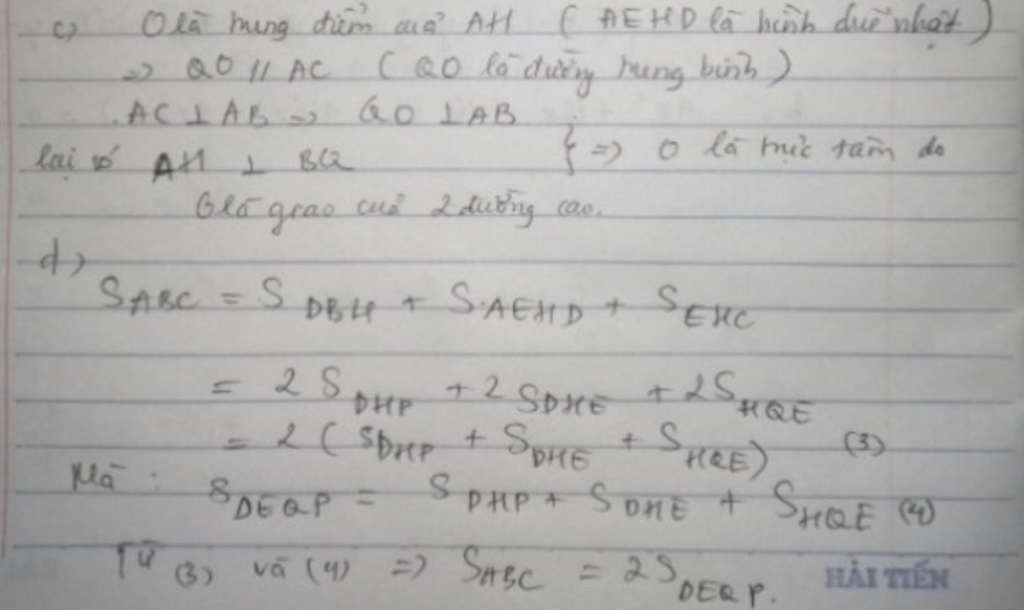 c) O là trung điểm của AH ( AEHD là hình chữ nhật )
=> QO // AC ( QO là đường trung bình )
AC ⊥ AB => QO ⊥ AB
lại có AH ⊥ BQ } => O là trực tâm do
O là giao của 2 đường cao.
d)
S_ABC = S_DBH + S_AEHD + S_EHC
= 2 S_DHP + 2 S_DHE + 2 S_HQE
= 2 ( S_DHP + S_DHE + S_HQE ) (3)
Mà : S_DEQP = S_DHP + S_DHE + S_HQE (4)
Từ (3) và (4) => S_ABC = 2 S_DEQP.
HẢI TIẾN